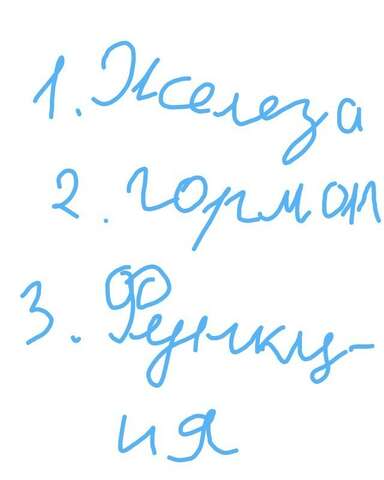 1. Железа
2. гормон
3. Функц-
ия